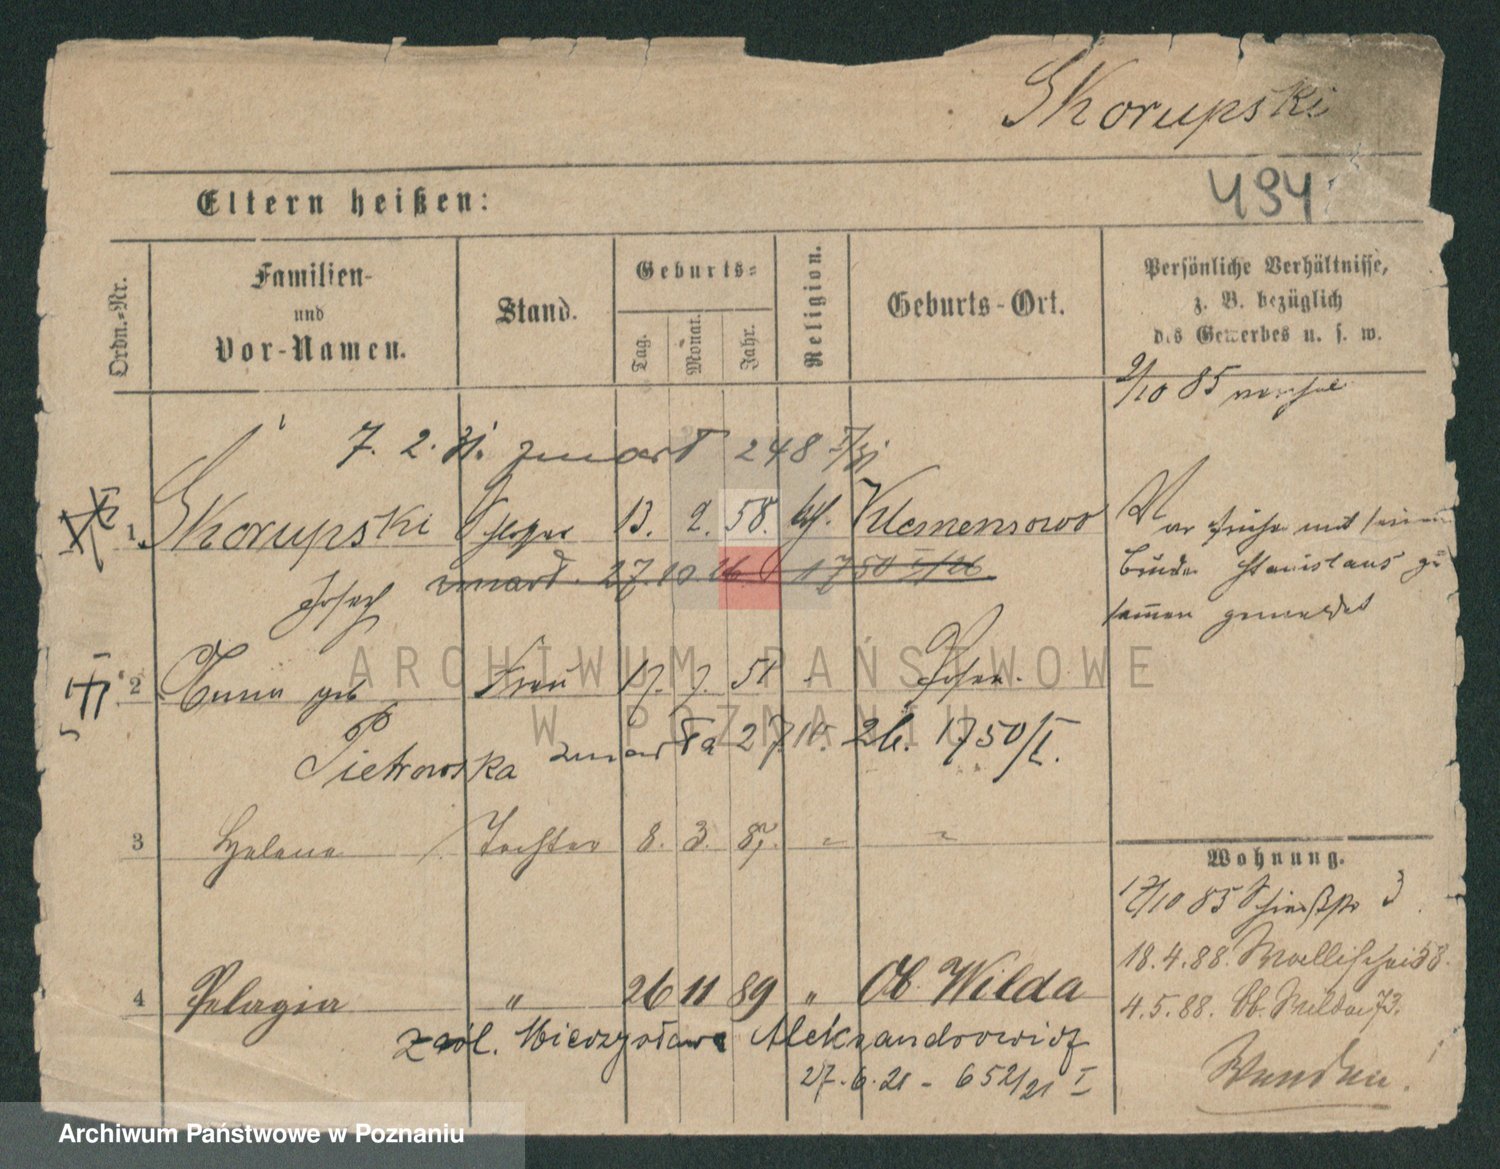 Skorupski
494
Eltern heißen:
Ordn.-Nr.
Familien-
und
Vor-Namen.
Stand.
Geburts-
Tag.
Monat.
Jahr.
Religion.
Geburts-Ort.
Persönliche Verhältnisse,
z. B. bezüglich
des Gewerbes u. s. w.
9/10 85
7. 2. 31. zmarł 248 I/31
1. Skorupski 13. 2. 58. kth. Klemensowo
Josef zmarł. 27. 10 26 1750 I/26
War früher mit seinem
Bruder Stanislaus zu
sammen gemeldet
2 geb Frau 17. 7. 51 Posen.
Pietrowska zmarła 27. 10. 26. 1750/I.
3 Helene Tochter 8. 3. 87. " "
4 Pelagia " 26 11 89 " Ob. Wilda
zaśl. Mieczysława Aleksandrowicz
27. 6. 21 - 652/21 I
Wohnung.
12/10 85 Schießstr 3
18. 4. 88.
4. 5. 88. Ob. Wilda 73.
ARCHIWUM PAŃSTWOWE
W POZNANIU
Archiwum Państwowe w Poznaniu